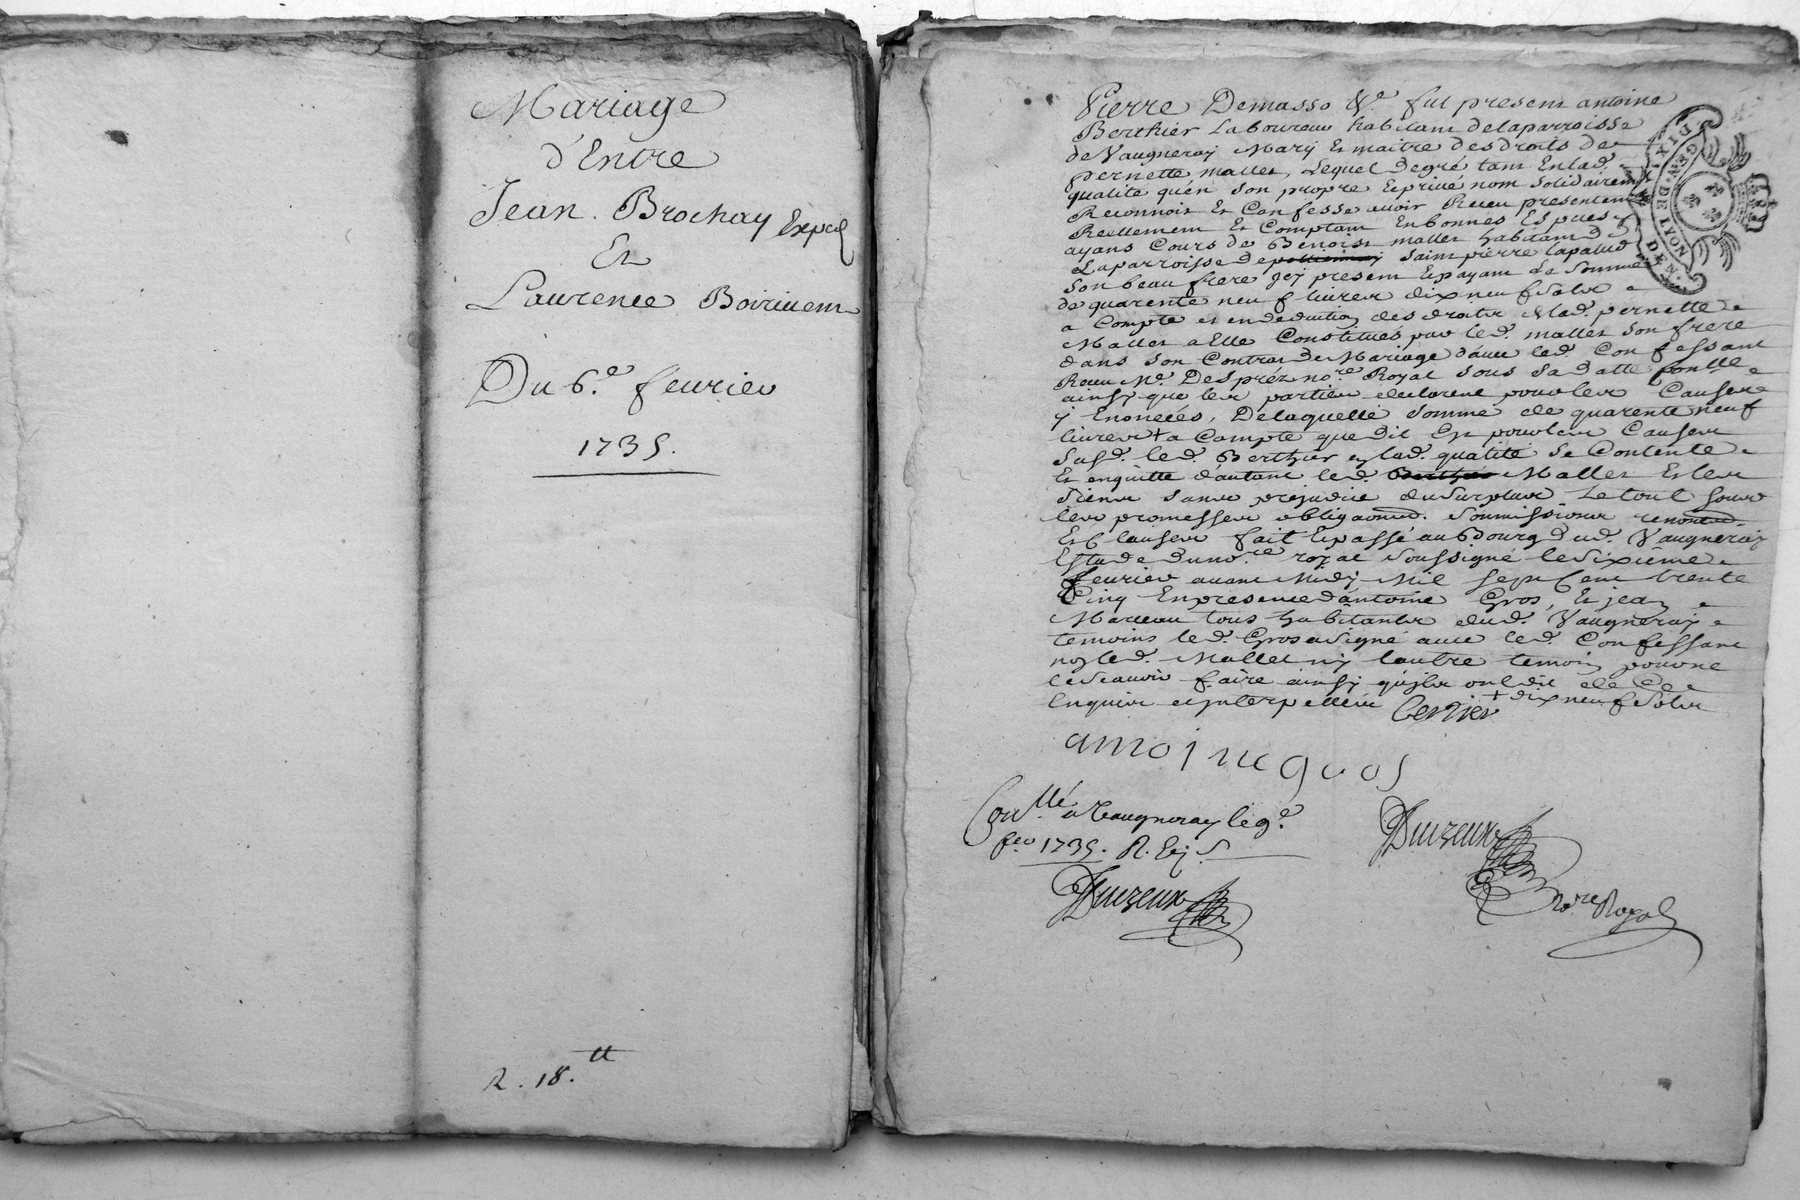 Mariage
d'Entre
Jean. Brochay Exped
Et
Laurence Boiriuent
Du 6.e feurier
1735.
R. 18.tt
Pierre Demasso &.e fut present antoine
Berthier Laboureur habitant delaparroisse
de Vaugneray Mary Et maitre desdroits de
pernette mallet, Lequel degré tant Enlad.
qualité qu'en Son propre Epriué nom Solidairemt
Reconnoit Et Confesse auoir Receu presentem
Reellement Et Comptant En bonnes Espèces
ayans Cours de Benoist mallet habitant de
Laparroisse de Saint pierre lapalud
Son beau frere Jcy present Epayant La Somme
de quarente neuf liures dix neuf Sols
a Compte et endeduction des droits Alad. pernette
Mallet a Elle Constitués par led. mallet Son frere
dans Son Contrat de Mariage d'auec led. Confessant
Receu Me. Despréz no.re Royal Sous Sa datte
ainsy que les parties declarent pour les Causes
y Enoncées, Delaquelle Somme de quarente neuf
liures + a Compte que dit Est pour les Causes
Susd. led. Berthier en lad. qualité Se Contente
Et enquitte d'autant led. Mallet Et les
Siens Sans prejudice du Surplus Le tout Sous
les promesses obliga Soumissions renon
Et Clauses fait Epassé au Bourg dud. Vaugneray
Estude du no.re royal Soussigné le Sixiême
feurier auant Midy Mil Sept Cent trente
Cinq En presence d'antoine Gros, Et jean
Marceau tous habitants dud. Vaugneray
temoins led. Gros a Signé auec led. Confessant
non led. Mallet ny l'autre temoin pour ne
le Scauoir faire ainsy qu'ils ont dit de Ce
Enquis et jnterpellés + dix neuf Sols
berthier
antoine gros
Con.llé a Vaugneray le 9.e
feu 1735. R.
Duizeux
Duizeux
No.re Royal
GEN. DE LYON
DIX
DEN.